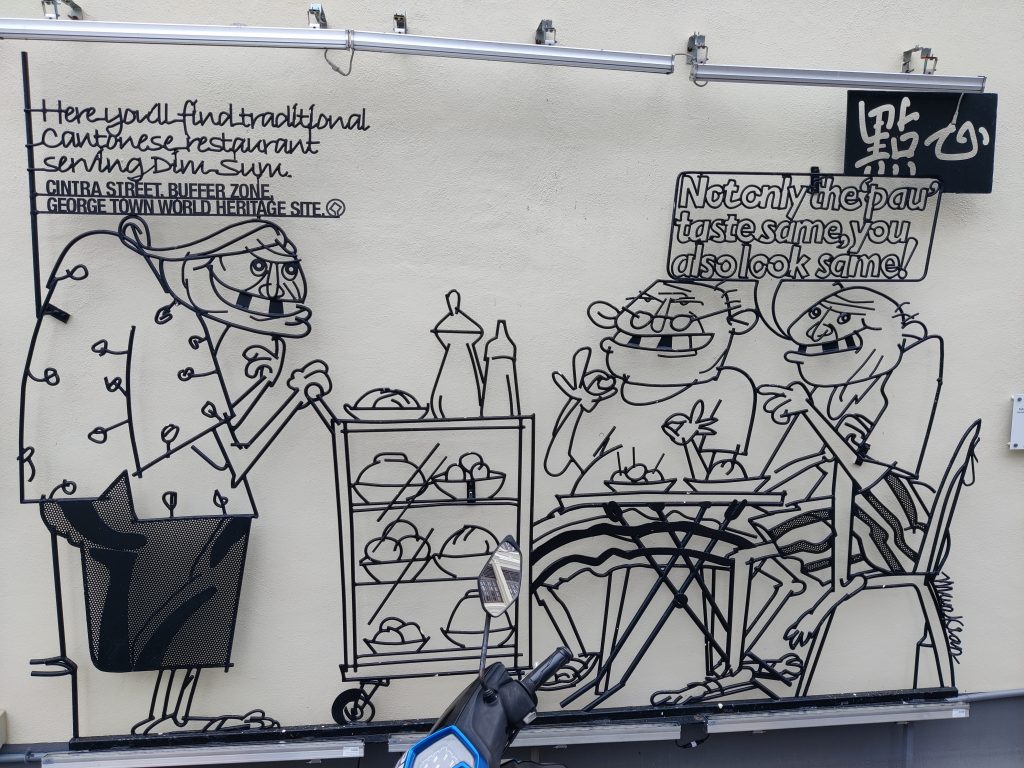 Here you'll find traditional
Cantonese restaurant
serving Dim Sum.
CINTRA STREET, BUFFER ZONE,
GEORGE TOWN WORLD HERITAGE SITE.
點心
Not only the 'pau'
taste same, you
also look same!